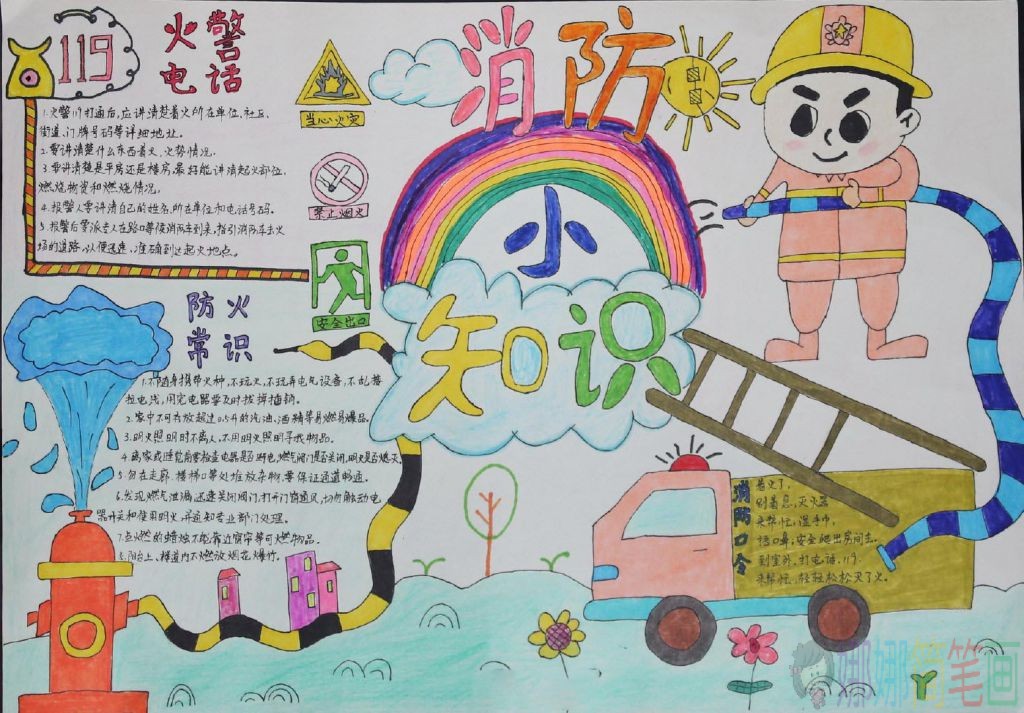 119
火警
电话
1.火警119打通后,应讲清楚着火所在单位、社区、
街道、门牌号码等详细地址。
2.要讲清楚什么东西着火,火势情况。
3.要讲清楚是平房还是楼房,最好能讲清起火部位,
燃烧物资和燃烧情况。
4.报警人要讲清自己的姓名,所在单位和电话号码。
5.报警后要派专人在路口等候消防车到来,指引消防车去火
场的道路,以便迅速,准确到达起火地点。
当心火灾
禁止烟火
安全出口
消防
小
知识
防火
常识
1.不随身携带火种,不玩火,不玩弄电气设备,不乱接
拉电线,用完电器要及时拔掉插销。
2.家中不可存放超过0.5升的汽油,酒精等易燃易爆品。
3.明火照明时不离人,不用明火照明寻找物品。
4.离家或睡觉前要检查电器是否断电,燃气阀门是否关闭,明火是否熄灭。
5.勿在走廊、楼梯口等处堆放杂物,要保证通道畅通。
6.发现燃气泄漏,迅速关闭阀门,打开门窗通风,切勿触动电
器开关和使用明火,并通知专业部门处理。
7.点燃的蜡烛不能靠近窗帘等可燃物品。
8.阳台上、楼道内不燃放烟花爆竹。
消防口令
着火了,
别着急,灭火器
来帮忙,湿手巾,
捂口鼻,安全爬出房间去。
到室外,打电话,119
来帮忙,轻轻松松灭了火。
娜娜简笔画